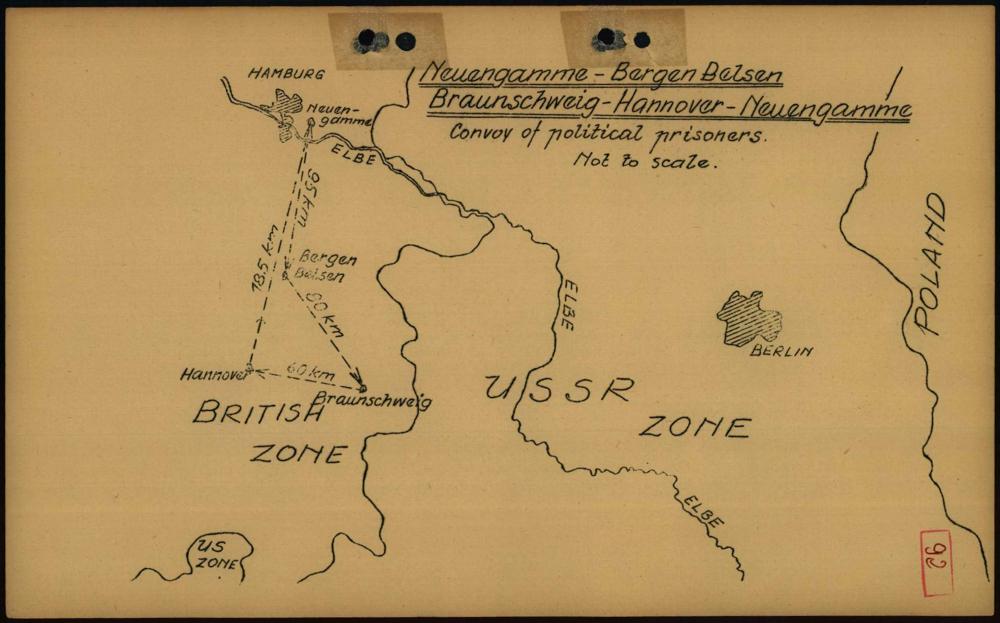 Neuengamme - Bergen Belsen
Braunschweig - Hannover - Neuengamme
Convoy of political prisoners.
Not to scale.
HAMBURG
Neuen-
gamme
ELBE
95 km
78.5 km
Bergen
Belsen
60 km
Hannover
60 km
Braunschweig
BRITISH
ZONE
US
ZONE
ELBE
USSR
ZONE
BERLIN
ELBE
POLAND
92